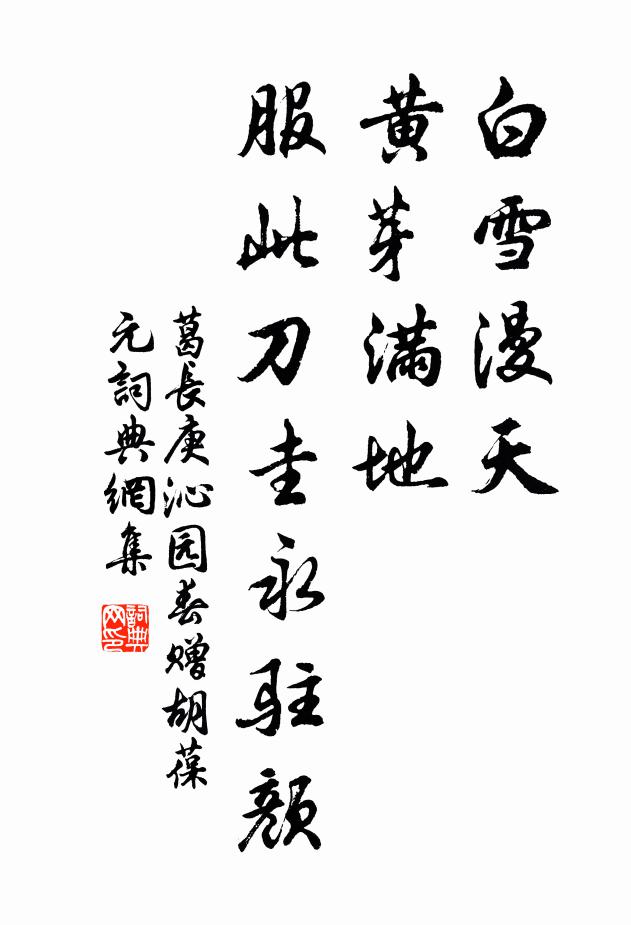 白雪漫天
黄芽滿地
服此刀圭永駐顔
葛長庚沁园春赠胡葆
元詞典網集
詞典网印